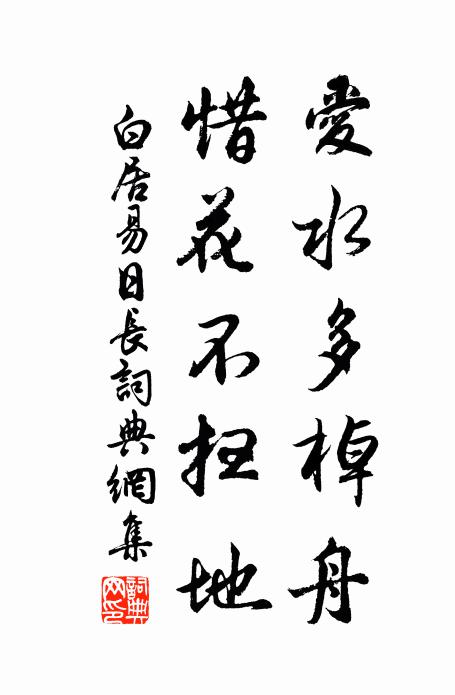 愛水多棹舟
惜花不扫地
白居易日長詞典網集
詞典網印